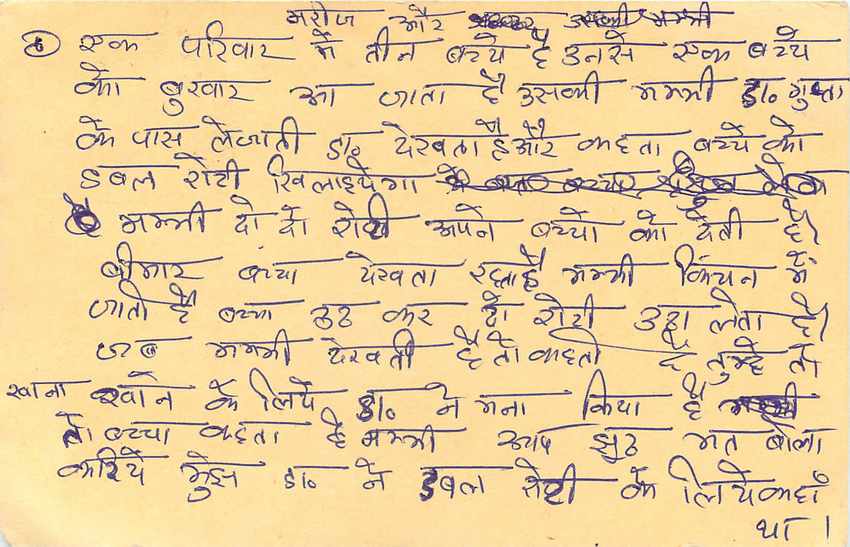 मरीज और उसकी मम्मी
6 एक परिवार मे तीन बच्चे है उनसे एक बच्चे
को बुखार आ जाता है उसकी मम्मी डा॰ गुप्ता
के पास लेजाती डा॰ देखता है और कहता बच्चे को
डबल रोटी खिलाइयेगा
मम्मी दो दो रोटी अपने बच्चो को देती है।
बीमार बच्चा देखता रहता है मम्मी किचन में
जाती है बच्चा उठ कर दो रोटी उठा लेता है।
जब मममी देखती है तो कहती है तुम्हे तो
खाना खाने के लिये डा॰ ने मना किया है
तो बच्चा कहता है मम्मी आप झुठ मत बोला
करिये मुझे डा॰ ने डबल रोटी के लिये कहाँ
था।